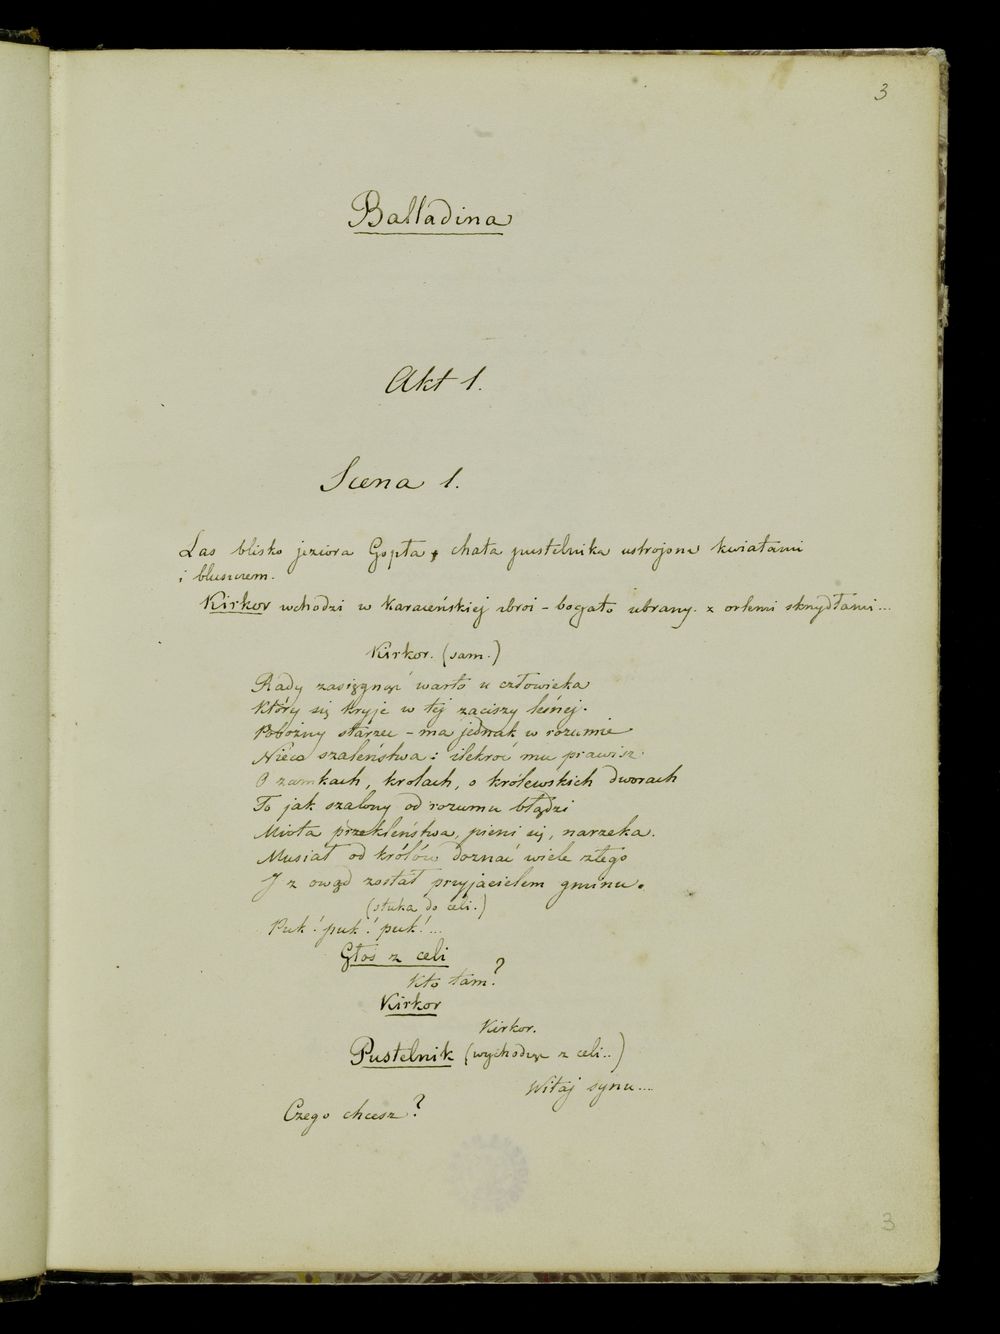 3
Balladina
Akt 1.
Scena 1.
Las blisko jeziora Gopła, chata pustelnika ustrojona kwiatami
i bluszczem.
Kirkor wchodzi w karaceńskiej zbroi - bogato ubrany. z orlemi skrzydłami...
Kirkor. (sam.)
Rady zasięgnąć warto u człowieka
Który się kryje w tej zaciszy leśnej.
Pobożny starzec - ma jednak w rozumie
Nieco szaleństwa: ilekroć mu prawisz
O zamkach, krolach, o królewskich dworach
To jak szalony od rozumu błądzi
Miota przekleństwa, pieni się, narzeka.
Musiał od królów doznać wiele złego
I z owąd został przyjacielem gminu.
(stuka do celi.)
Puk! puk! puk!...
Głos z celi
Kto tam?
Kirkor
Kirkor.
Pustelnik (wychodząc z celi..)
Witaj synu...
Czego chcesz?
3